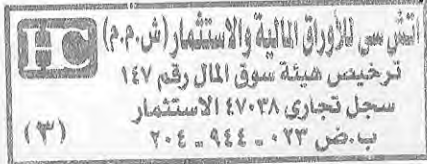 اتش سي للأوراق المالية والاستثمار (ش.م.م) HC
ترخيص هيئة سوق المال رقم ١٤٧
سجل تجارى ٤٧٠٣٨ الاستثمار
ب.ض ٠٢٣ - ٩٤٤ - ٢٠٤ (٣)